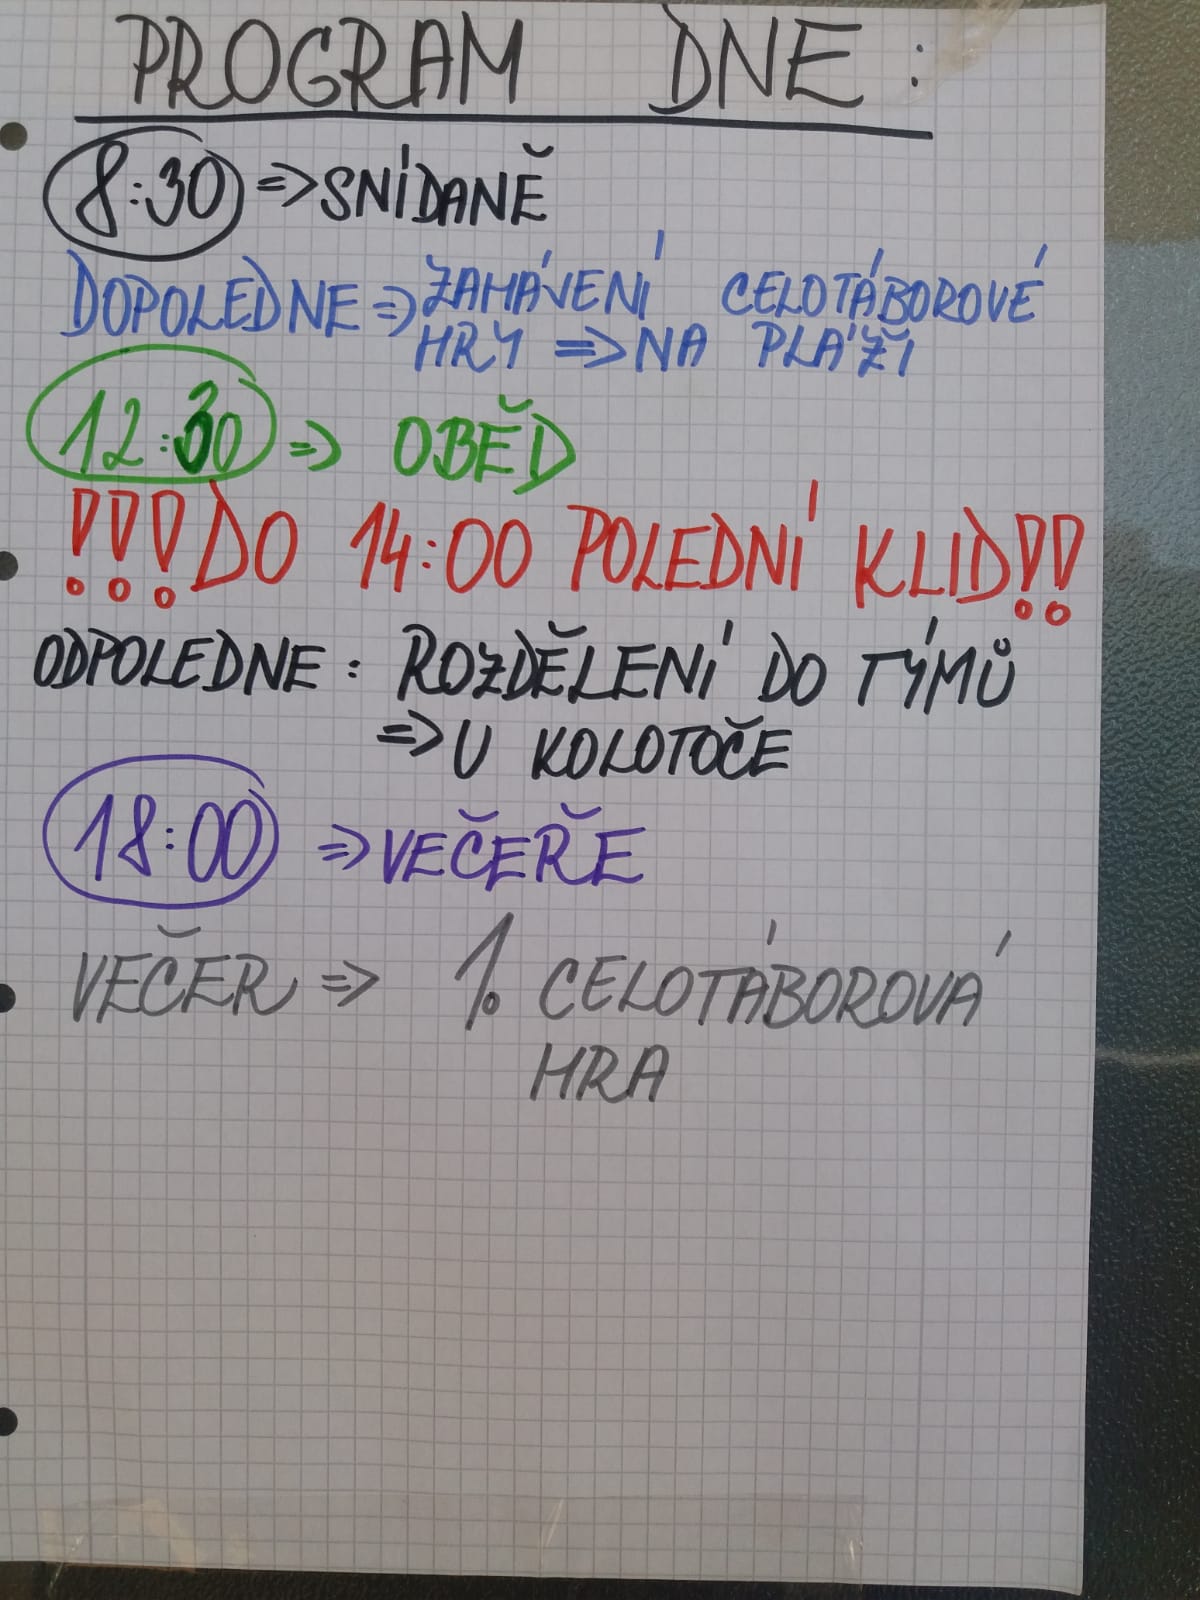 PROGRAM DNE:
8:30 => SNÍDANĚ
DOPOLEDNE => ZAHÁVENÍ CELOTÁBOROVÉ
HRY => NA PLÁŽI
12:30 => OBĚD
!!! DO 14:00 POLEDNÍ KLID!!
ODPOLEDNE: ROZDĚLENÍ DO TÝMŮ
=> U KOLOTOČE
18:00 => VEČEŘE
VEČER => 1. CELOTÁBOROVÁ
HRA